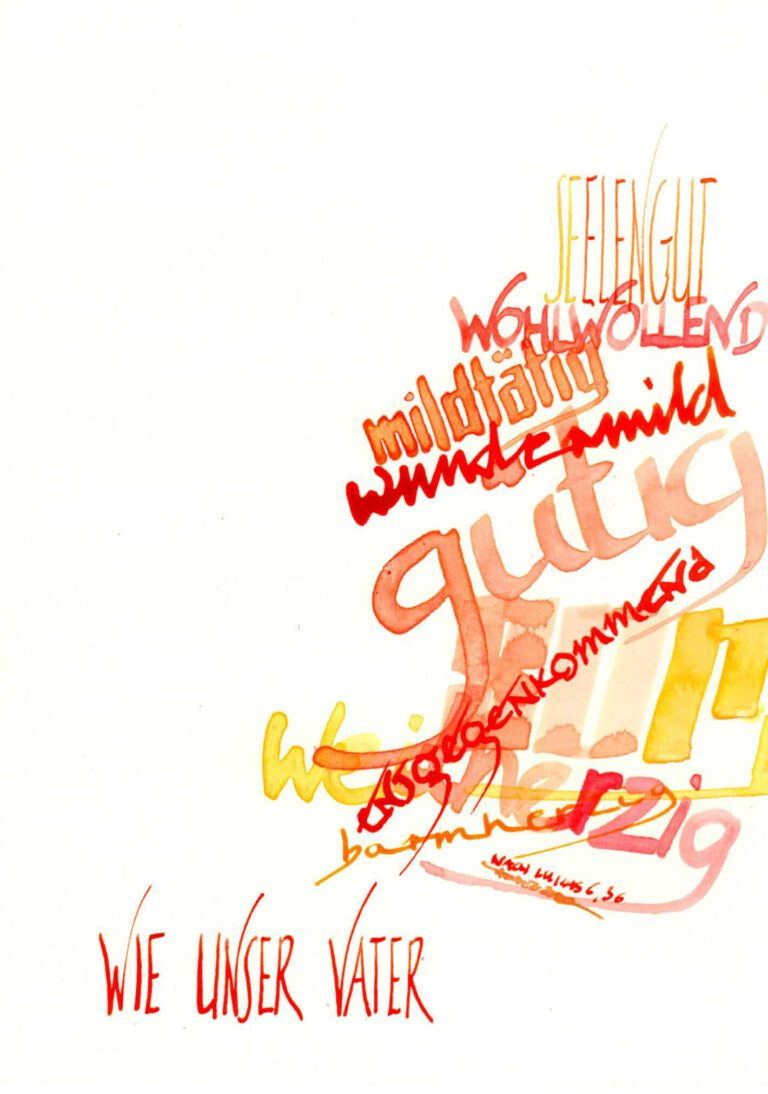 SEELENGUT
WOHLWOLLEND
mildtätig
wundermild
gütig
entgegenkommend
weichherzig
barmherzig
NACH LUKAS 6,36
WIE UNSER VATER